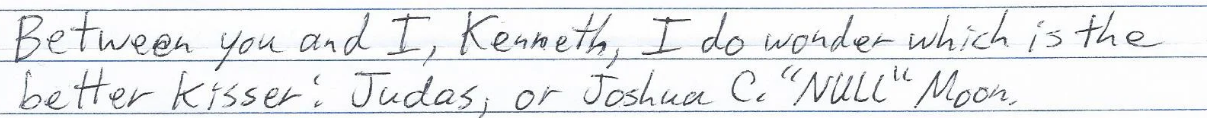 Between you and I, Kenneth, I do wonder which is the
better kisser: Judas, or Joshua C. "NULL" Moon.